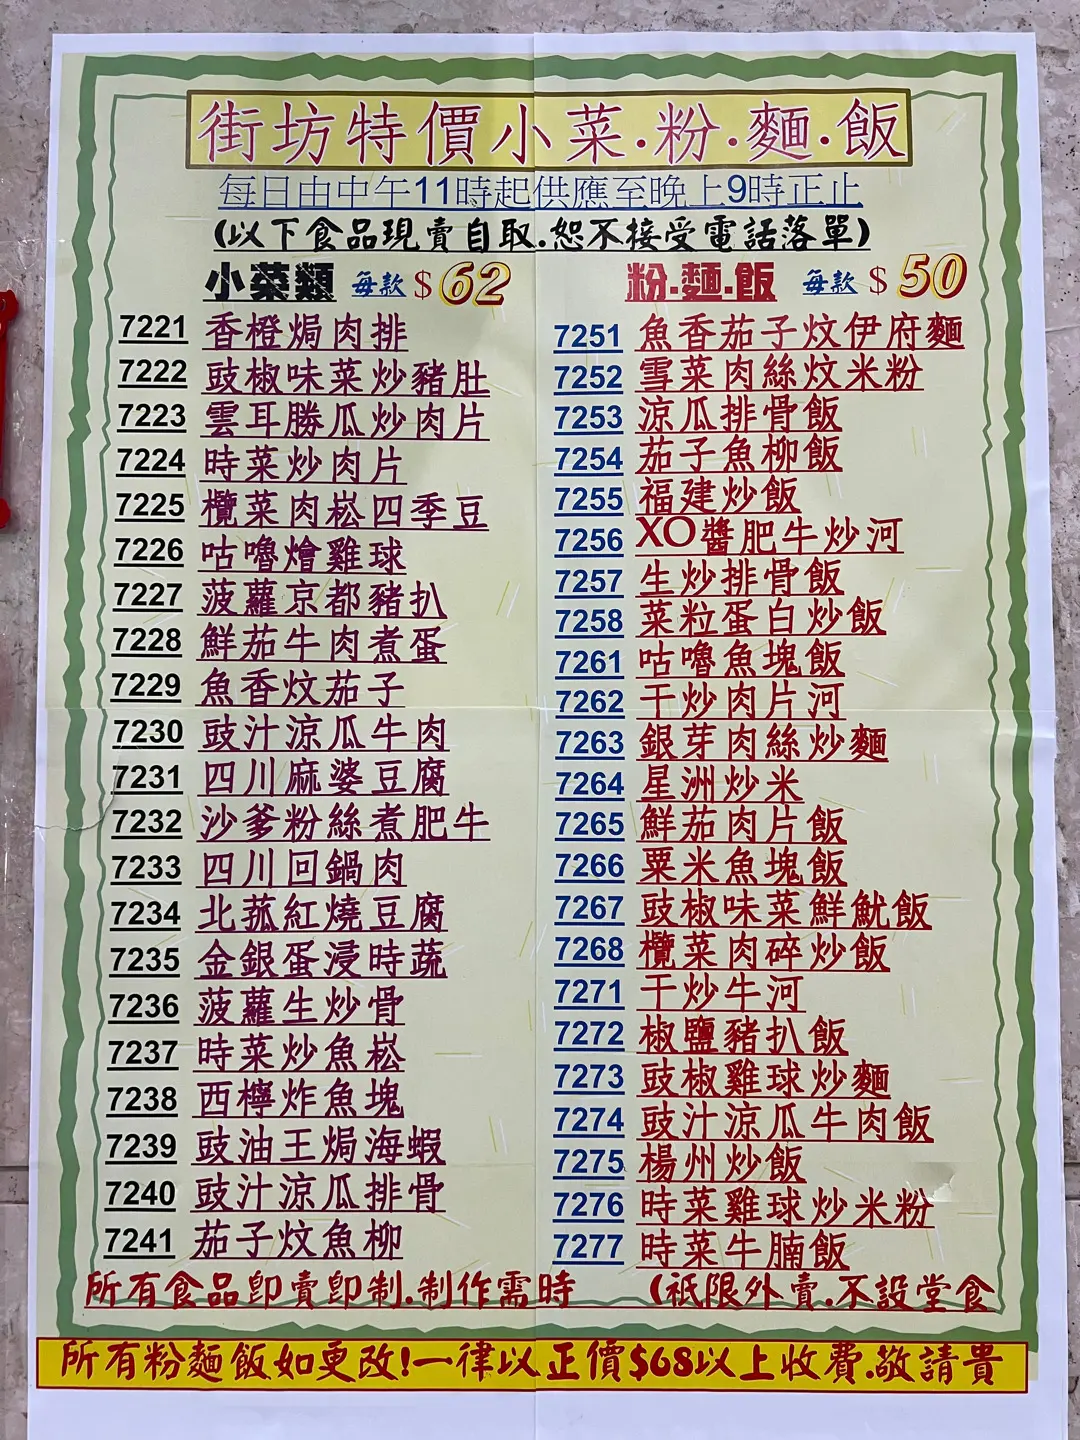 街坊特價小菜.粉.麵.飯
每日由中午11時起供應至晚上9時正止
(以下食品現賣自取.恕不接受電話落單)
小菜類 每款 $62
7221 香橙焗肉排
7222 豉椒味菜炒豬肚
7223 雲耳勝瓜炒肉片
7224 時菜炒肉片
7225 欖菜肉崧四季豆
7226 咕嚕燴雞球
7227 菠蘿京都豬扒
7228 鮮茄牛肉煮蛋
7229 魚香炆茄子
7230 豉汁涼瓜牛肉
7231 四川麻婆豆腐
7232 沙爹粉絲煮肥牛
7233 四川回鍋肉
7234 北菰紅燒豆腐
7235 金銀蛋浸時蔬
7236 菠蘿生炒骨
7237 時菜炒魚崧
7238 西檸炸魚塊
7239 豉油王焗海蝦
7240 豉汁涼瓜排骨
7241 茄子炆魚柳
粉.麵.飯 每款 $50
7251 魚香茄子炆伊府麵
7252 雪菜肉絲炆米粉
7253 涼瓜排骨飯
7254 茄子魚柳飯
7255 福建炒飯
7256 XO醬肥牛炒河
7257 生炒排骨飯
7258 菜粒蛋白炒飯
7261 咕嚕魚塊飯
7262 干炒肉片河
7263 銀芽肉絲炒麵
7264 星洲炒米
7265 鮮茄肉片飯
7266 粟米魚塊飯
7267 豉椒味菜鮮魷飯
7268 欖菜肉碎炒飯
7271 干炒牛河
7272 椒鹽豬扒飯
7273 豉椒雞球炒麵
7274 豉汁涼瓜牛肉飯
7275 楊州炒飯
7276 時菜雞球炒米粉
7277 時菜牛腩飯
所有食品即賣即制.制作需時 (祇限外賣.不設堂食
所有粉麵飯如更改!一律以正價$68以上收費.敬請貴